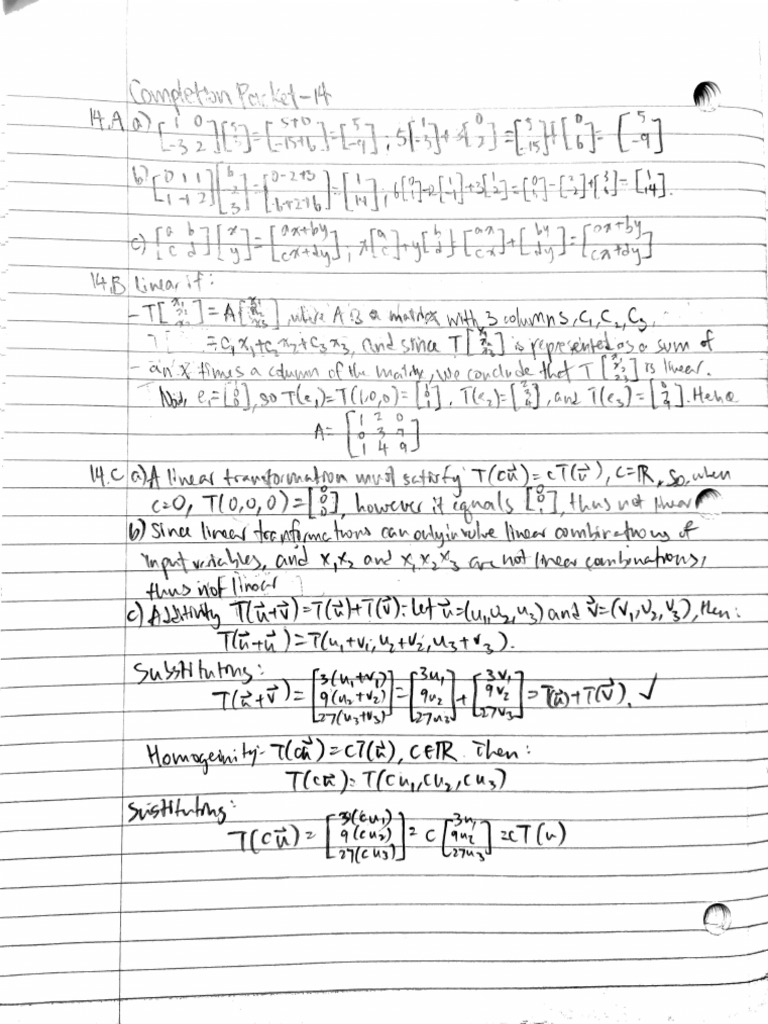 Completion Packet-14
14.A a) [1 0; -3 2][5; 3] = [5+0; -15+6] = [5; -9] ; 5[1; -3] + 3[0; 2] = [5; -15] + [0; 6] = [5; -9]
b) [0 1 1; 1 -1 2][6; -2; 3] = [0-2+3; 6+2+6] = [1; 14] ; 6[0; 1] - 2[1; -1] + 3[1; 2] = [0; 6] - [2; -2] + [3; 6] = [1; 14].
c) [a b; c d][x; y] = [ax+by; cx+dy] ; x[a; c] + y[b; d] = [ax; cx] + [by; dy] = [ax+by; cx+dy]
14.B Linear if:
- T[x1; x2; x3] = A[x1; x2; x3], where A is a matrix with 3 columns, C1, C2, C3.
= C1 x1 + C2 x2 + C3 x3, And since T[x1; x2; x3] is represented as a sum of
- an x times a column of the matrix, we conclude that T[x1; x2; x3] is linear.
e1 = [1; 0; 0], so T(e1) = T(1,0,0) = [1; 0; 1], T(e2) = [2; 3; 4], and T(e3) = [0; 7; 9]. Hence
A = [1 2 0; 0 3 7; 1 4 9]
14.C a) A linear transformation must satisfy T(cu⃗) = cT(u⃗), c=ℝ, So, when
c=0, T(0,0,0) = [0; 0; 0], however it equals [0; 0; 1], thus not linear
b) Since linear transformations can only involve linear combinations of
input variables, and x1x2 and x1x2x3 are not linear combinations,
thus not linear
c) Additivity T(u⃗+v⃗) = T(u⃗)+T(v⃗): Let u⃗=(u1,u2,u3) and v⃗=(v1,v2,v3), then:
T(u⃗+u⃗) = T(u1+v1, u2+v2, u3+v3).
Substituting:
T(u⃗+v⃗) = [3(u1+v1); 9(u2+v2); 27(u3+v3)] = [3u1; 9u2; 27u3] + [3v1; 9v2; 27v3] = T(u⃗)+T(v⃗). ✓
Homogeinity- T(cu⃗) = cT(u⃗), c∈ℝ. Then:
T(cu⃗) = T(cu1, cu2, cu3)
Sustituting:
T(cu⃗) = [3(cu1); 9(cu2); 27(cu3)] = c[3u1; 9u2; 27u3] = cT(u)